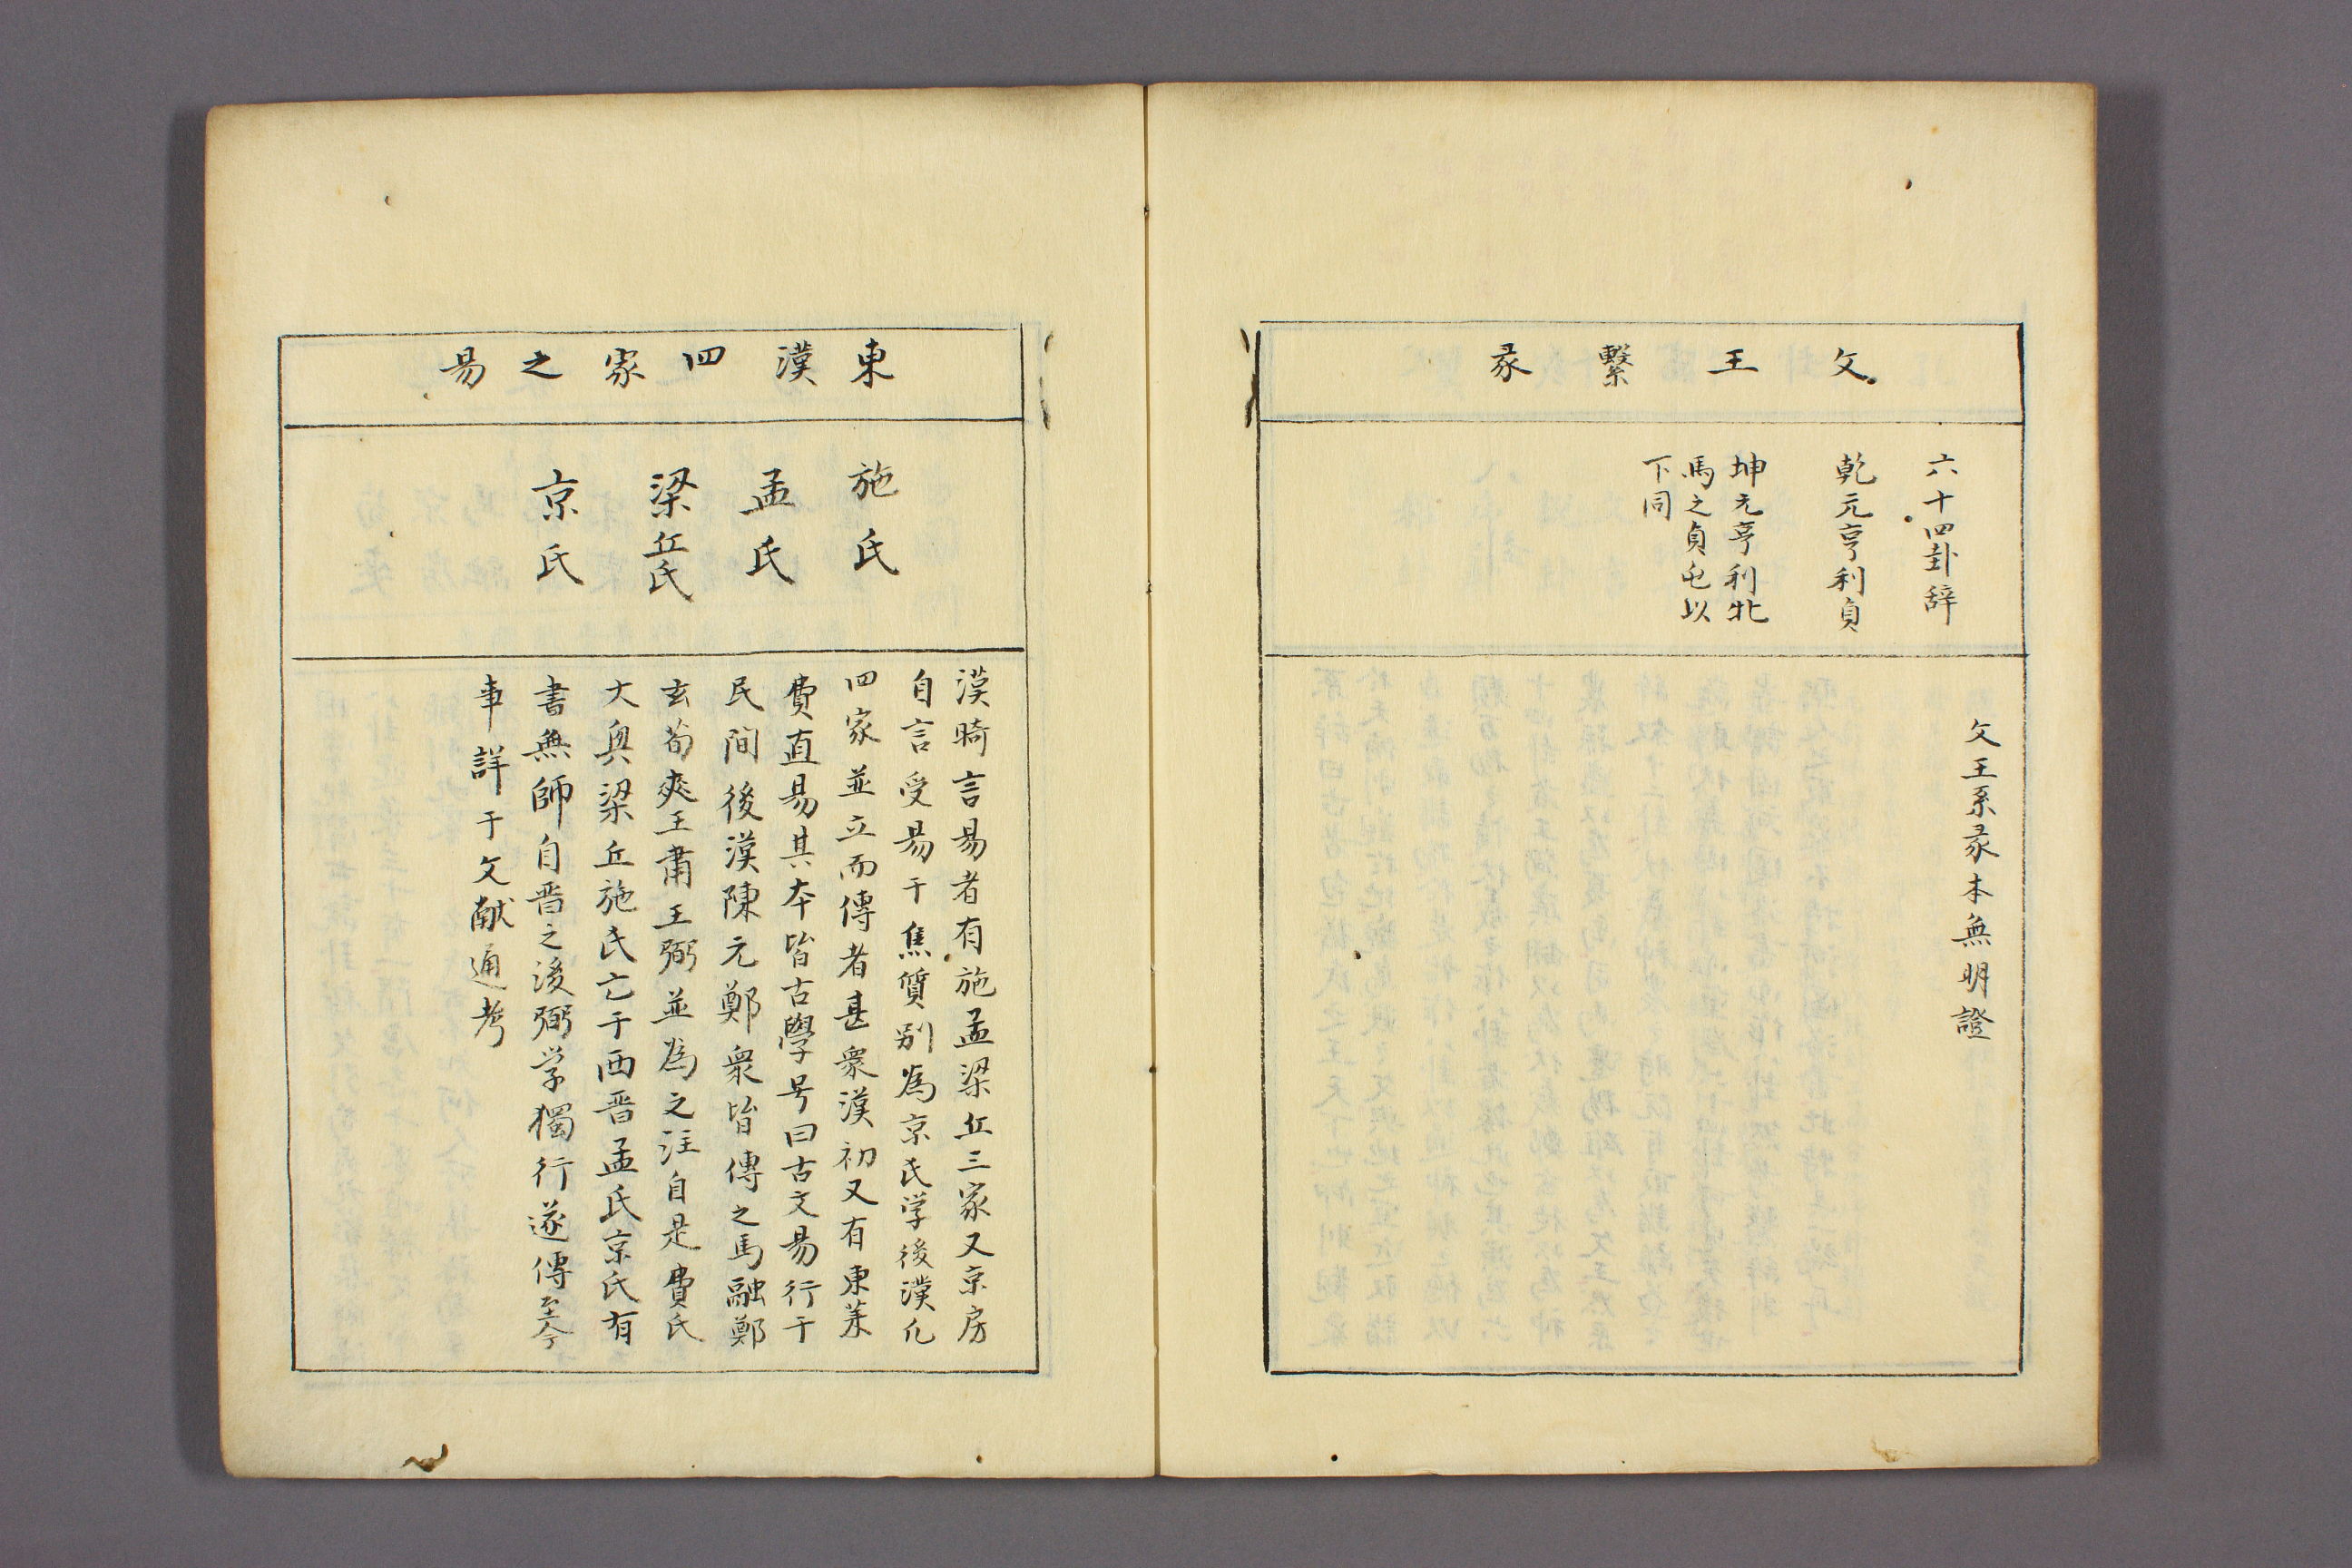 文王繫彖
六十四卦辞
乾元亨利貞
坤元亨利牝
馬之貞屯以
下同
文王系彖本無明證
東漢四家之易
施氏
孟氏
梁丘氏
京氏
漢時言易者有施孟梁丘三家又京房
自言受易于焦贛别為京氏学後漢凡
四家並立而傳者甚衆漢初又有東萊
費直易其本皆古學号曰古文易行于
民間後漢陳元鄭衆皆傳之馬融鄭
玄荀爽王肅王弼並為之注自是費氏
大興梁丘施氏亡于西晋孟氏京氏有
書無師自晋之後弼学獨行遂傳至今
事詳于文献通考